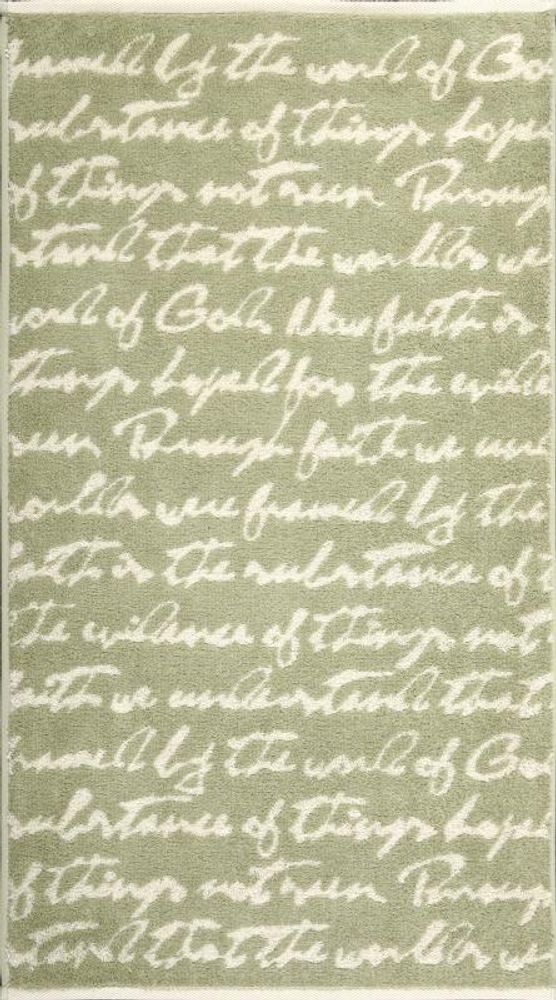 framed by the word of God
substance of things hope
of things not seen Through
stand that the worlds we
word of God. Now faith is
things hoped for, the evide
seen Through faith we und
worlds were framed by the
faith is the substance of t
the evidence of things not
faith we understand that
framed by the word of Go
substance of things hope
of things not seen Through
stand that the worlds we